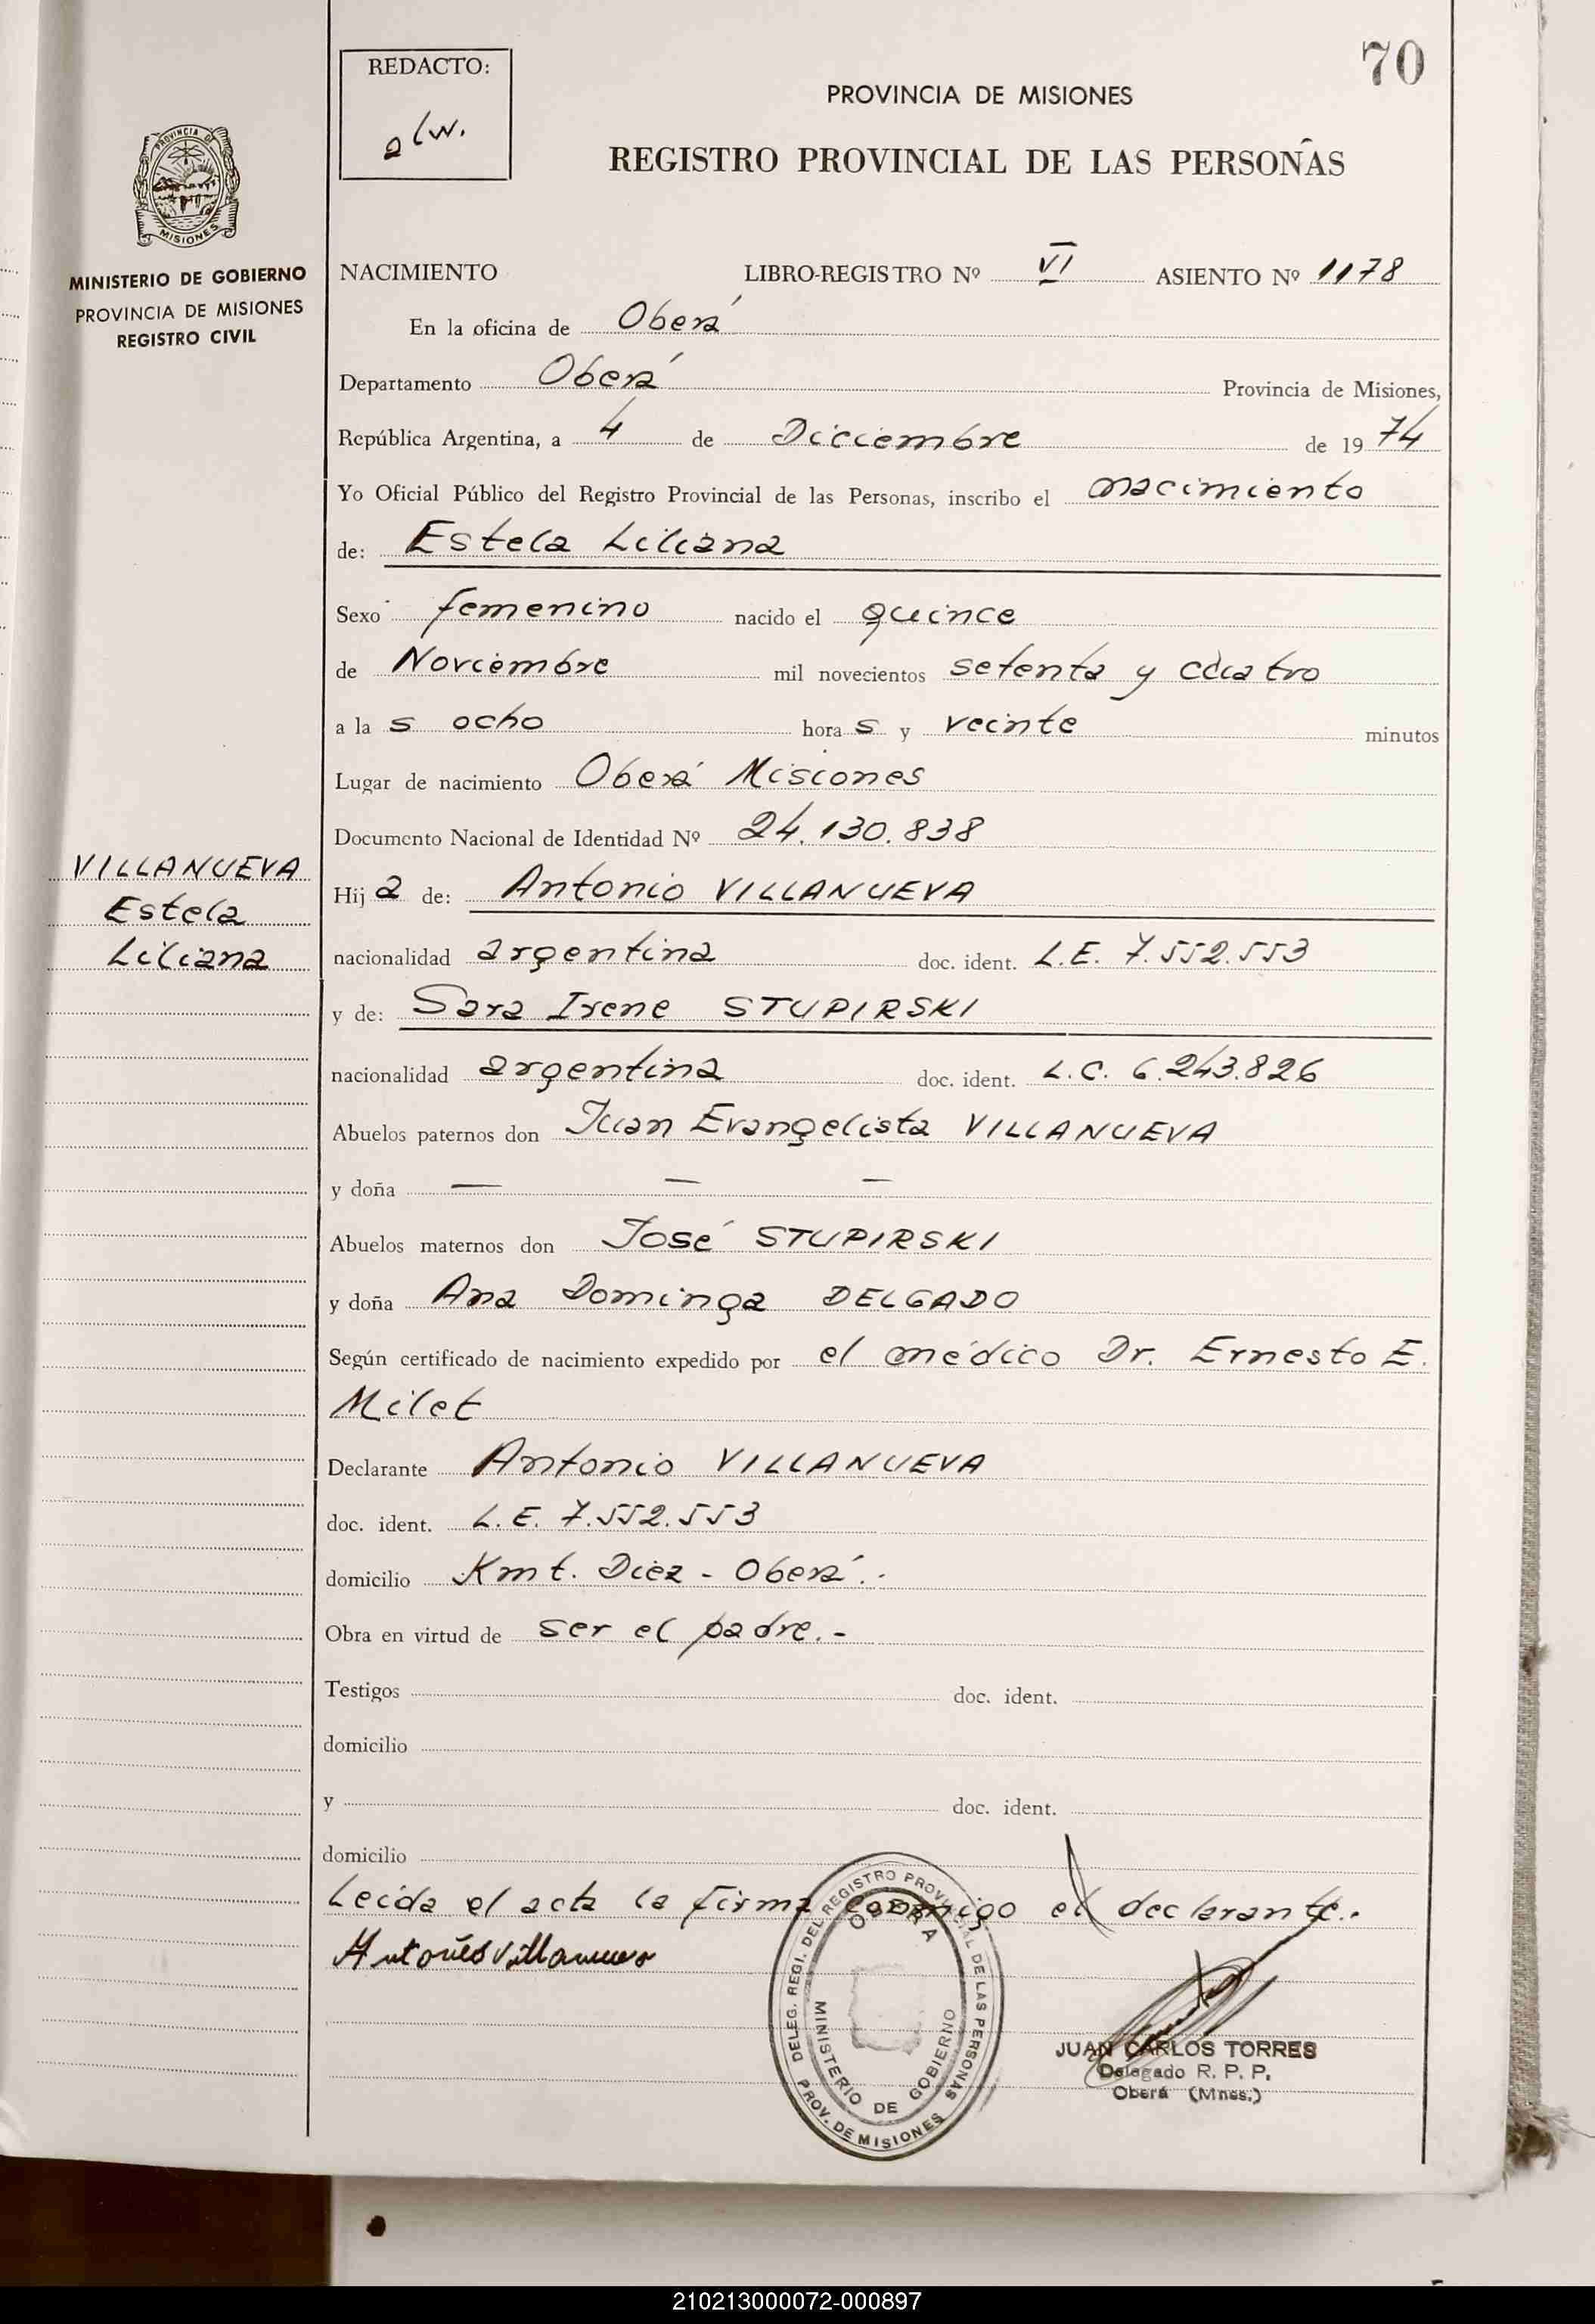 70
REDACTO:
alw.
PROVINCIA DE MISIONES
REGISTRO PROVINCIAL DE LAS PERSONAS
PROVINCIA DE
MISIONES
MINISTERIO DE GOBIERNO
PROVINCIA DE MISIONES
REGISTRO CIVIL
NACIMIENTO LIBRO-REGISTRO Nº VI ASIENTO Nº 1178
En la oficina de Oberá
Departamento Oberá Provincia de Misiones,
República Argentina, a 4 de Diciembre de 1974
Yo Oficial Público del Registro Provincial de las Personas, inscribo el nacimiento
de: Estela Liliana
Sexo femenino nacido el quince
de Noviembre mil novecientos setenta y cuatro
a las ocho horas y veinte minutos
Lugar de nacimiento Oberá Misiones
Documento Nacional de Identidad Nº 24.130.838
VILLANUEVA
Estela
Liliana
Hija de: Antonio VILLANUEVA
nacionalidad argentina doc. ident. L.E. 7.552.553
y de: Sara Irene STUPIRSKI
nacionalidad argentina doc. ident. L.C. 6.243.826
Abuelos paternos don Juan Evangelista VILLANUEVA
y doña — — —
Abuelos maternos don José STUPIRSKI
y doña Ana Dominga DELGADO
Según certificado de nacimiento expedido por el médico Dr. Ernesto E.
Milet
Declarante Antonio VILLANUEVA
doc. ident. L.E. 7.552.553
domicilio Kmt. Diez - Oberá.-
Obra en virtud de ser el padre.-
Testigos doc. ident.
domicilio
y doc. ident.
domicilio
Leida el acta la firma conmigo el declarante.-
Antonio Villanueva
DELEG. REGI. DEL REGISTRO PROVINCIAL DE LAS PERSONAS
OBERA
MINISTERIO DE GOBIERNO
PROV. DE MISIONES
JUAN CARLOS TORRES
Delegado R. P. P.
Oberá (Mnes.)
210213000072-000897